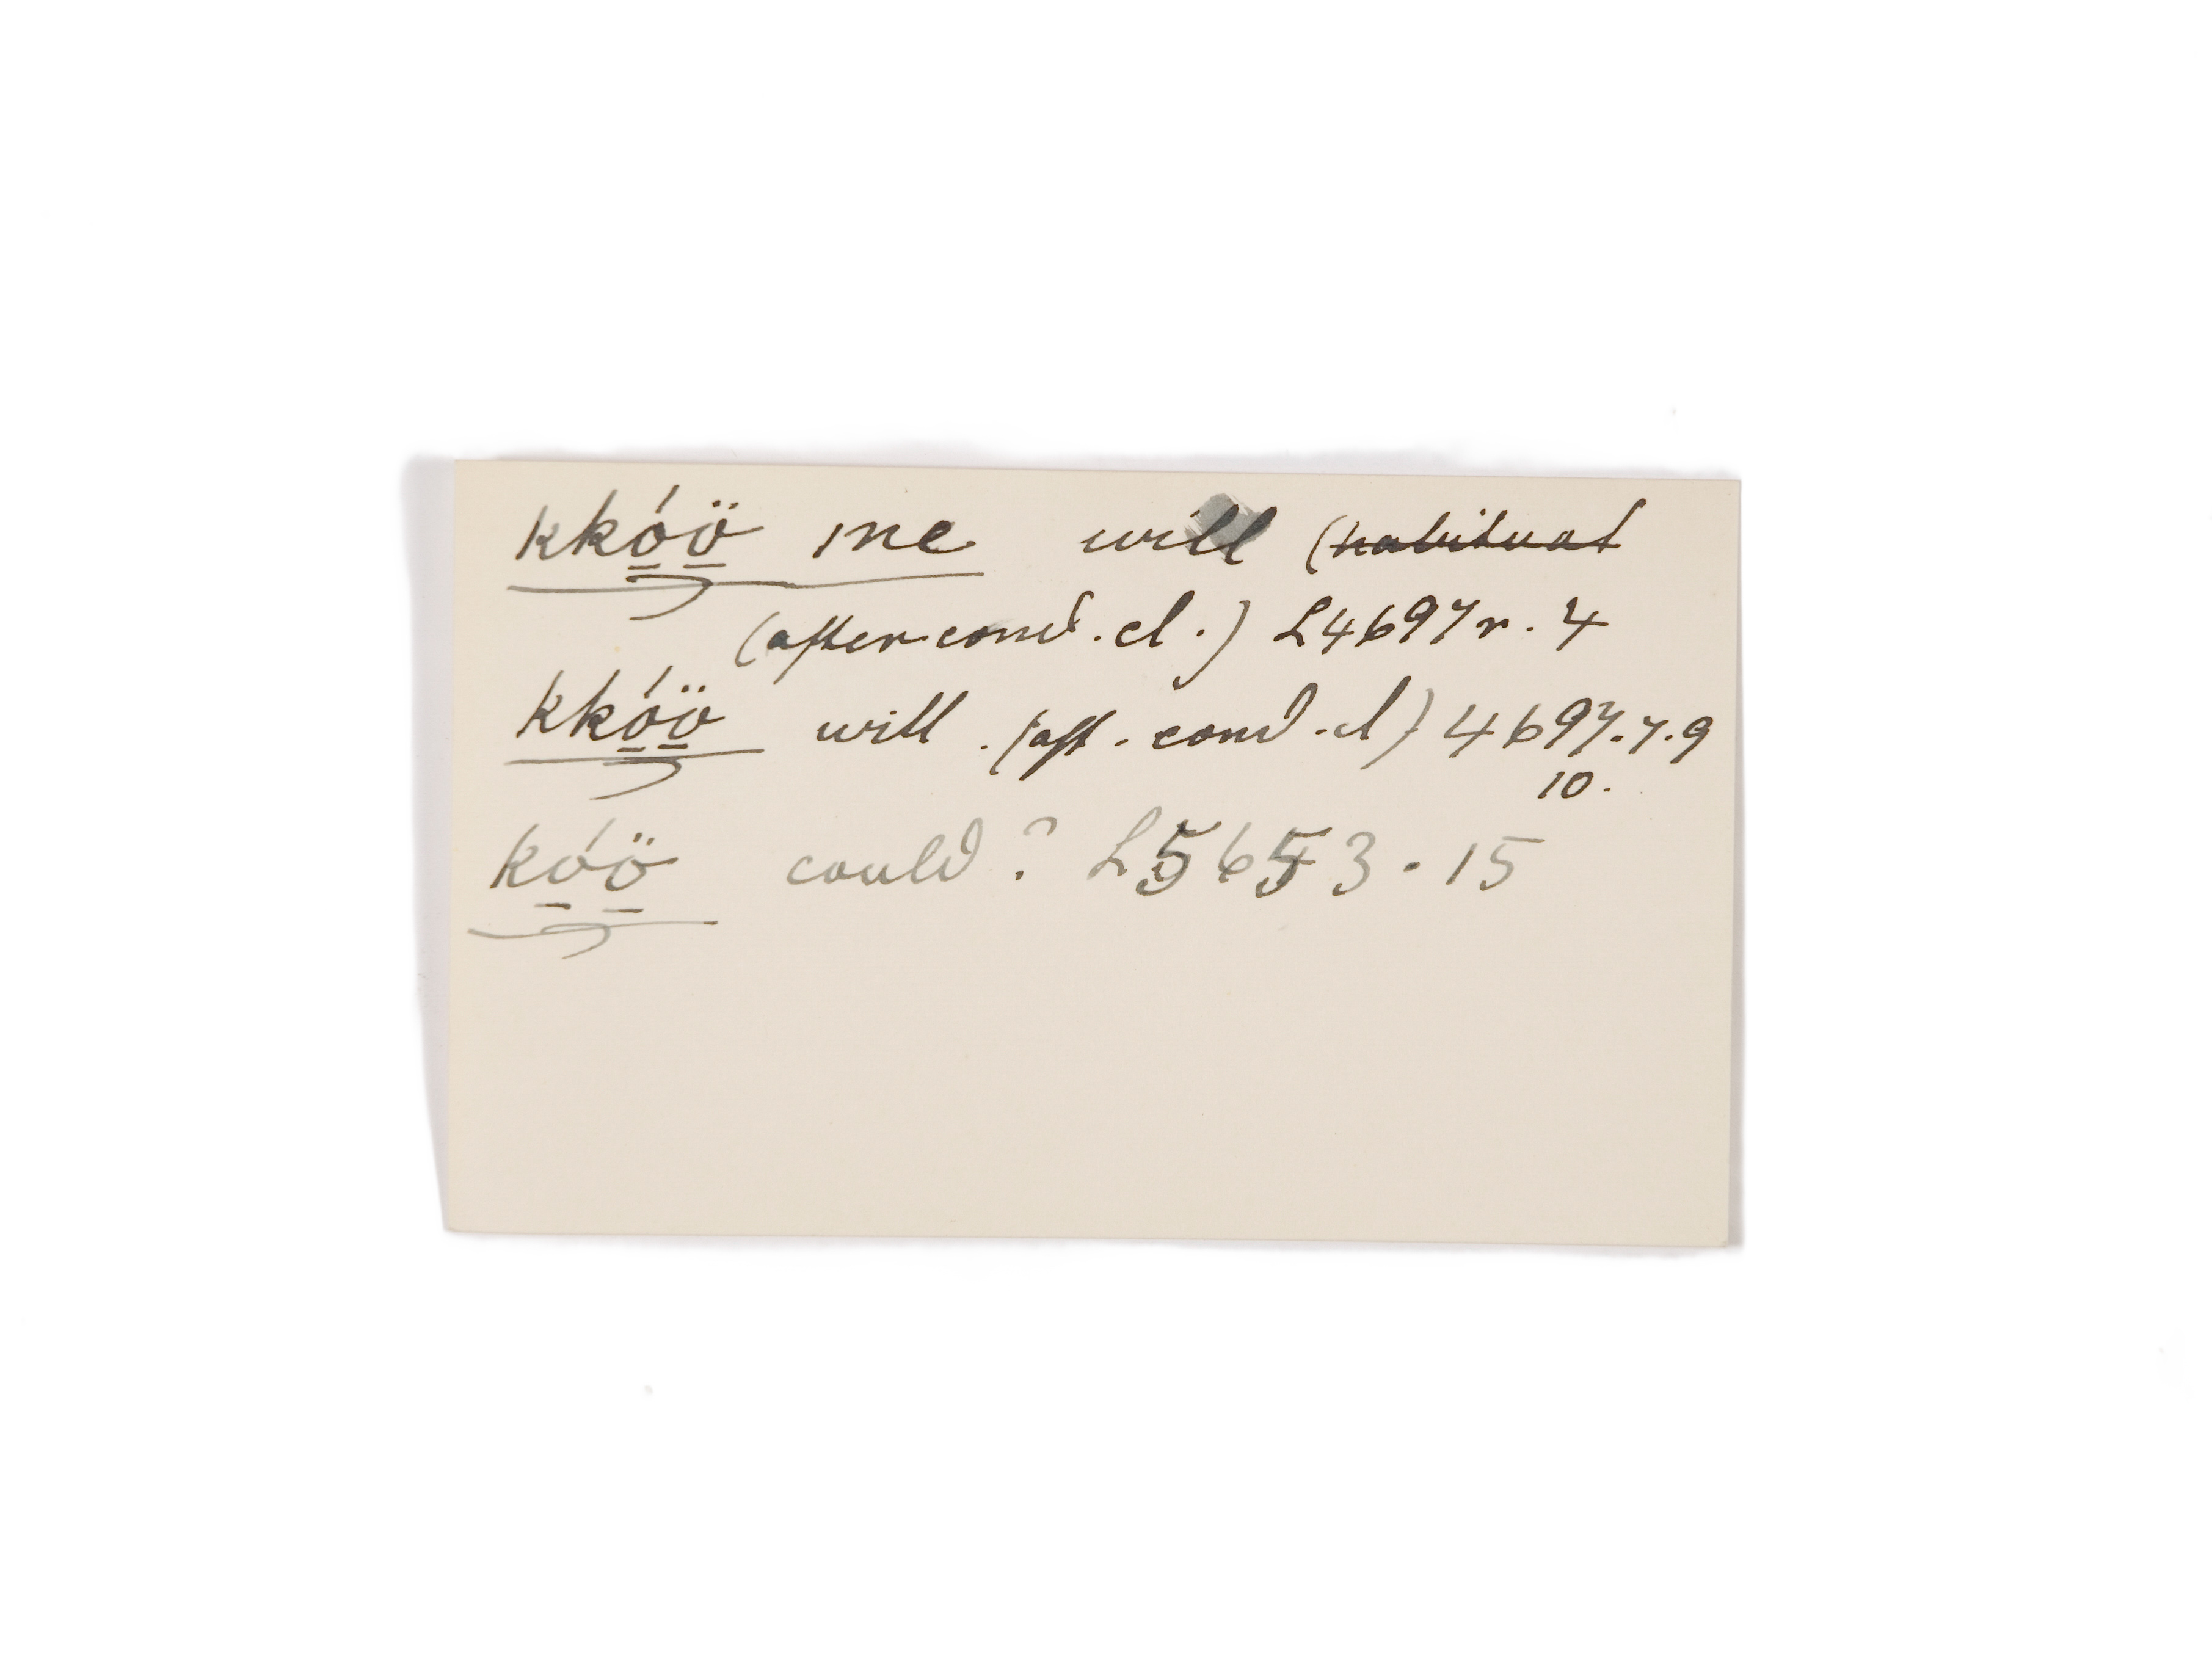 kkó̲ö̲ me will (habitual
(after cond. cl.) L4697r. 4
kkó̲ö̲ will . (aft. cond. cl) 4697.7.9
10.
kó̲ö̲ could? L5653.15